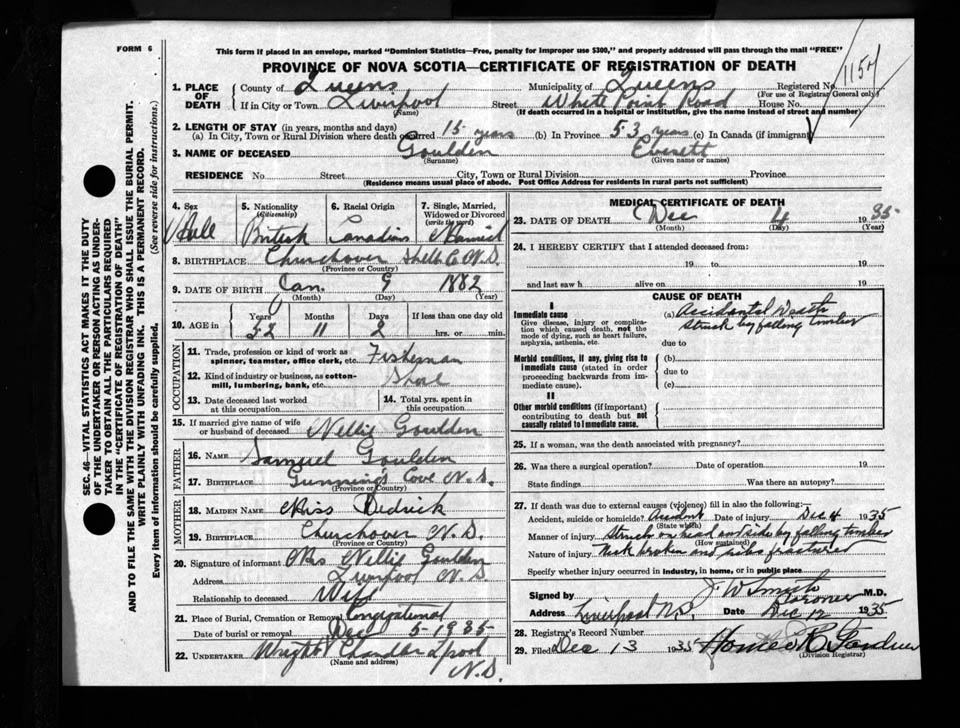 FORM 6
This form if placed in an envelope, marked "Dominion Statistics—Free, penalty for improper use $300," and properly addressed will pass through the mail "FREE"
PROVINCE OF NOVA SCOTIA—CERTIFICATE OF REGISTRATION OF DEATH
SEC. 46—VITAL STATISTICS ACT MAKES IT THE DUTY
OF THE UNDERTAKER OR PERSON ACTING AS UNDER-
TAKER TO OBTAIN ALL THE PARTICULARS REQUIRED
IN THE "CERTIFICATE OF REGISTRATION OF DEATH"
AND TO FILE THE SAME WITH THE DIVISION REGISTRAR WHO SHALL ISSUE THE BURIAL PERMIT.
WRITE PLAINLY WITH UNFADING INK. THIS IS A PERMANENT RECORD.
Every item of information should be carefully supplied. (See reverse side for instructions.)
1. PLACE OF DEATH
County of Queens Municipality of Queens Registered No. 1154
(For use of Registrar General only)
If in City or Town Liverpool Street White Point Road House No.
(Name) (If death occurred in a hospital or institution, give the name instead of street and number)
2. LENGTH OF STAY (in years, months and days)
(a) In City, Town or Rural Division where death occurred 15 years (b) In Province 53 years (c) In Canada (if immigrant)
3. NAME OF DECEASED Goulden Everett
(Surname) (Given name or names)
RESIDENCE No. Street City, Town or Rural Division Province
(Residence means usual place of abode. Post Office Address for residents in rural parts not sufficient)
4. Sex 5. Nationality (Citizenship) 6. Racial Origin 7. Single, Married, Widowed or Divorced (write the word)
Male British Canadian Married
8. BIRTHPLACE Churchover Shelb. Co N.S.
(Province or Country)
9. DATE OF BIRTH Jan. 9 1882
(Month) (Day) (Year)
10. AGE in Years Months Days If less than one day old
52 11 2 hrs. or min.
OCCUPATION
11. Trade, profession or kind of work as spinner, teamster, office clerk, etc. Fisherman
12. Kind of industry or business, as cotton-mill, lumbering, bank, etc. Shore
13. Date deceased last worked at this occupation
14. Total yrs. spent in this occupation
15. If married give name of wife or husband of deceased Nellie Goulden
FATHER
16. NAME Samuel Goulden
17. BIRTHPLACE Gunning Cove N.S.
(Province or Country)
MOTHER
18. MAIDEN NAME Miss Dedrick
19. BIRTHPLACE Churchover N.S.
(Province or Country)
20. Signature of informant Mrs Nellie Goulden
Address Liverpool N.S.
Relationship to deceased Wife
21. Place of Burial, Cremation or Removal Congregational
Date of burial or removal Dec 5-1935
22. UNDERTAKER Wright Chandler Lpool
(Name and address)
N.S.
MEDICAL CERTIFICATE OF DEATH
23. DATE OF DEATH Dec 4 1935
(Month) (Day) (Year)
24. I HEREBY CERTIFY that I attended deceased from:
19 to 19
and last saw h alive on 19
CAUSE OF DEATH
I
Immediate cause (a) Accidental Death
Struck by falling timber
Give disease, injury or complication which caused death, not the mode of dying, such as heart failure, asphyxia, asthenia, etc.
due to
Morbid conditions, if any, giving rise to immediate cause (stated in order proceeding backwards from immediate cause).
(b)
due to
(c)
II
Other morbid conditions (if important) contributing to death but not causally related to immediate cause.
25. If a woman, was the death associated with pregnancy?
26. Was there a surgical operation? Date of operation 19
State findings Was there an autopsy?
27. If death was due to external causes (violence) fill in also the following:—
Accident, suicide or homicide? Accident Date of injury Dec 4 1935
(State which)
Manner of injury Struck on head and side by falling timber
(How sustained)
Nature of injury Neck broken and ribs fractured
Specify whether injury occurred in industry, in home, or in public place
Signed by J W Smith M.D.
Coroner
Address Liverpool N.S. Date Dec 12 1935
28. Registrar's Record Number
29. Filed Dec 13 1935 Homer R Gardner
(Division Registrar)